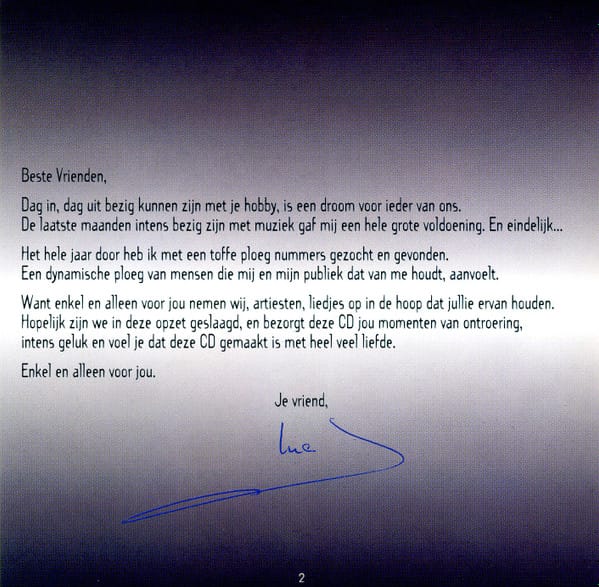 Beste Vrienden,
Dag in, dag uit bezig kunnen zijn met je hobby, is een droom voor ieder van ons.
De laatste maanden intens bezig zijn met muziek gaf mij een hele grote voldoening. En eindelijk...
Het hele jaar door heb ik met een toffe ploeg nummers gezocht en gevonden.
Een dynamische ploeg van mensen die mij en mijn publiek dat van me houdt, aanvoelt.
Want enkel en alleen voor jou nemen wij, artiesten, liedjes op in de hoop dat jullie ervan houden.
Hopelijk zijn we in deze opzet geslaagd, en bezorgt deze CD jou momenten van ontroering,
intens geluk en voel je dat deze CD gemaakt is met heel veel liefde.
Enkel en alleen voor jou.
Je vriend,
Luc
2